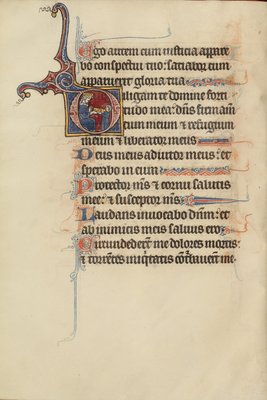 Ego autem cum iusticia appare
bo conspectui tuo: saciabor cum
apparuerit gloria tua
Diligam te domine forti
tudo mea: dn̄s firmam̄
tum meum et refugium
meum et liberator meus
Deus meus adiutor meus: et
sperabo in eum
Protector m̄s et cornu salutis
mee: et susceptor m̄s
Laudans inuocabo dn̄m: et
ab inimicis meis saluus ero
Circumdeder̄t me dolores mortis:
et torrentes iniq̄tatis cōt᷑bauer̄t me